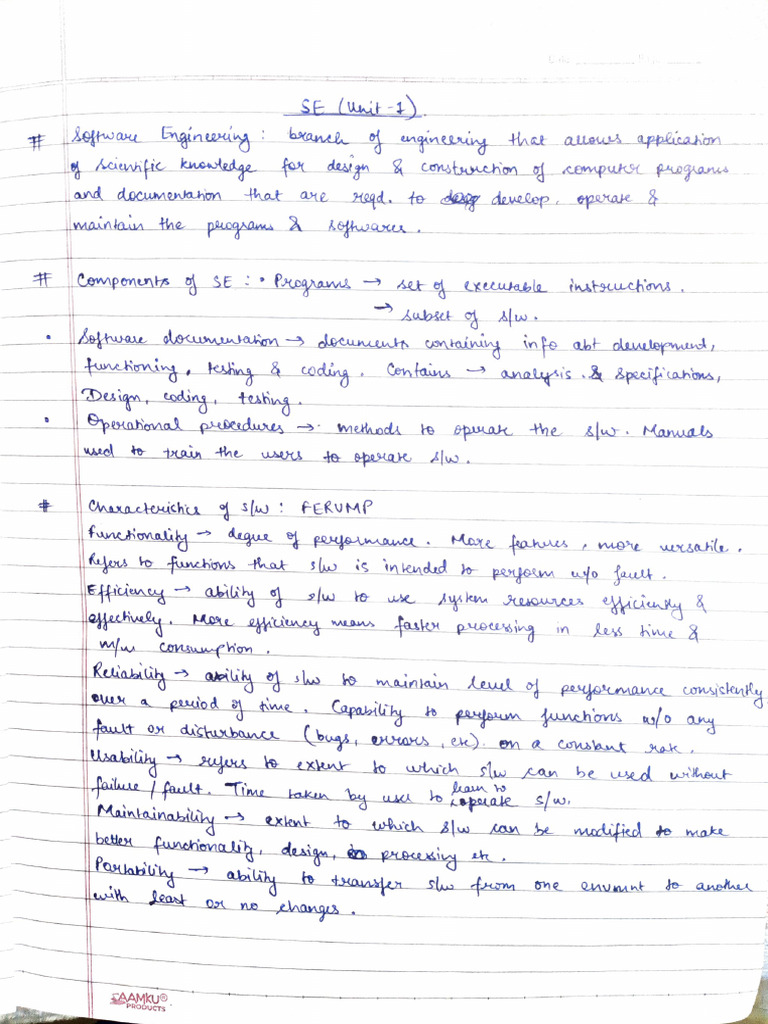 SE (Unit-1)
# Software Engineering : branch of engineering that allows application
of scientific knowledge for design & construction of computer programs
and documentation that are reqd. to develop, operate &
maintain the programs & softwares.
# Components of SE : • Programs → set of executable instructions.
→ subset of s/w.
• Software documentation → documents containing info abt development,
functioning, testing & coding. Contains → analysis & specifications,
Design, coding, testing.
• Operational procedures → methods to operate the s/w. Manuals
used to train the users to operate s/w.
# Characterichcs of s/w : FERUMP
Functionality → degue of performance. More features, more versatile.
Refers to functions that s/w is intended to perform w/o fault.
Efficiency → ability of s/w to use system resources efficiently &
effectively. More efficiency means faster processing in less time &
m/w consumption.
Reliability → ability of s/w to maintain level of performance consistently
over a period of time. Capability to perform functions w/o any
fault or disturbance (bugs, errors, etc). on a constant rate.
Usability → refers to extent to which s/w can be used without
failure / fault. Time taken by user to learn to operate s/w.
Maintainability → extent to which s/w can be modified to make
better functionality, design, processing etc.
Portability → ability to transfer s/w from one envmnt to another
with least or no changes.
AAMKU®
PRODUCTS